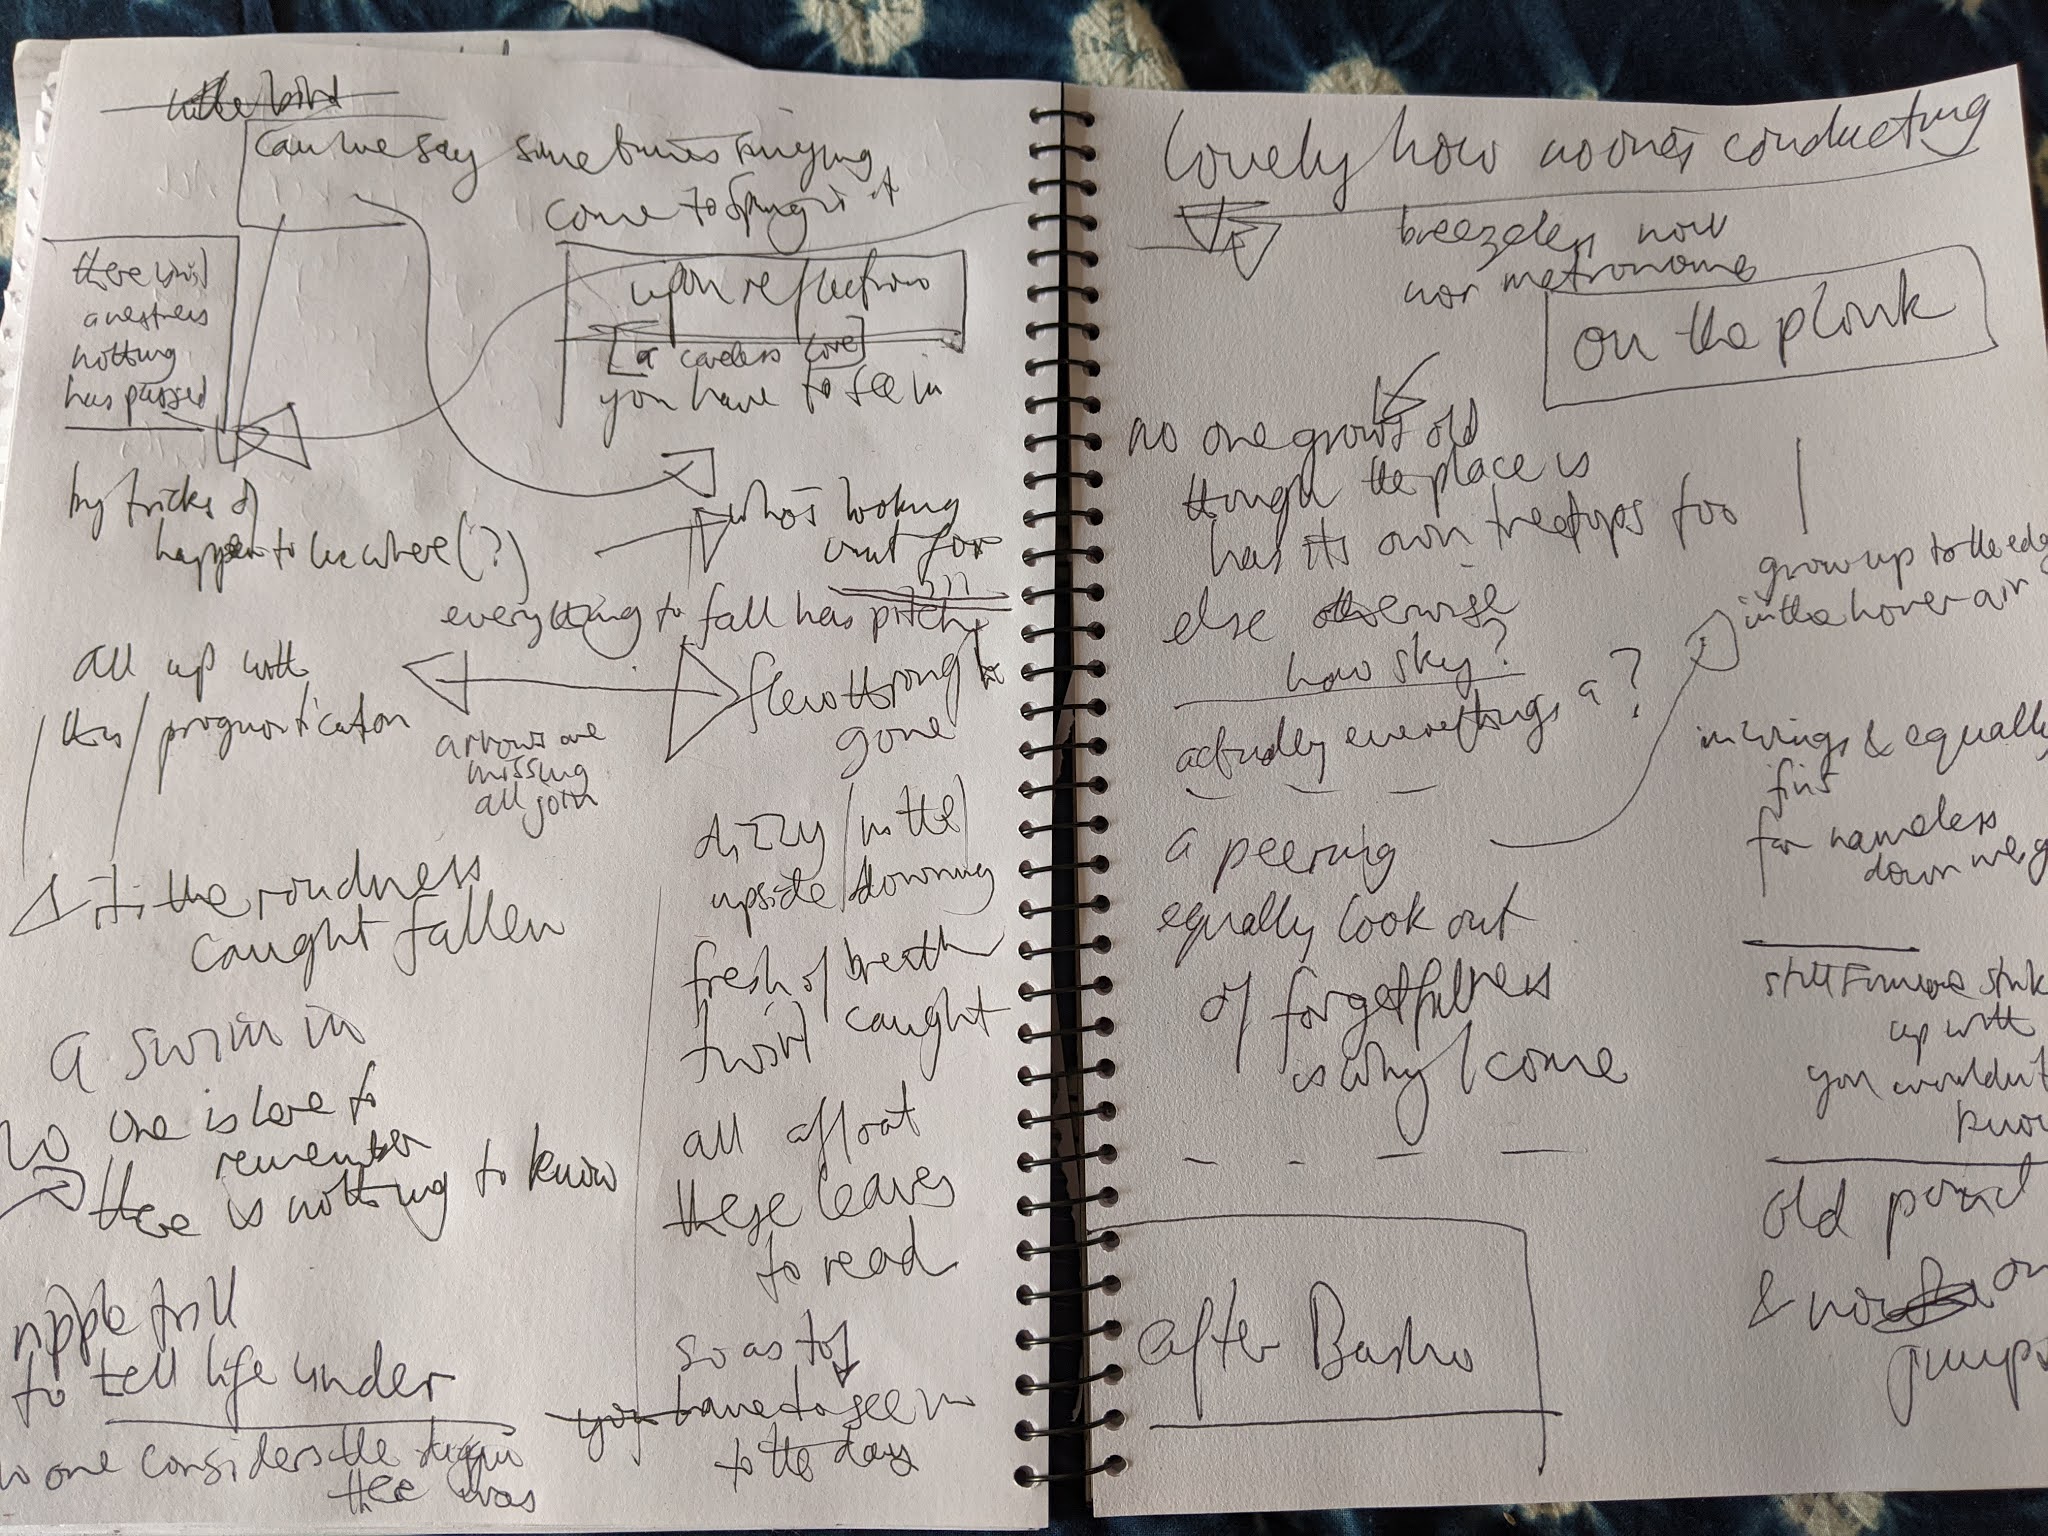 can we say sometimes singing
come to spring it
upon reflection
[a careless love]
you have to see in
there
nothing
has passed
by tricks of
happen to be where(?)
who's looking
out for
everything to fall has pitch
all up with
this / prognostication
arrows are
missing
all join
gone
it's the roundness
caught fallen
dizzy / in the /
upside / downing
fresh of breath
twirl caught
a swim in
no one is love to
remember
there is nothing to know
all afloat
these leaves
to read
ripple trill
to tell life under
so as to
you have to see in
to the days
no one considers the
there was
lovely how no one's conducting
breezeless now
nor metronome
on the plonk
no one grows old
though the place is
has its own treetops too
else otherwise
how sky?
actually everything's a ?
a peering
equally look out
of forgetfulness
is why I come
after Basho
grow up to the edge
in the hover air
in wings & equally
fins
for nameless
down
still
up with
you wouldn't
know
old pond
& no
on
jumps